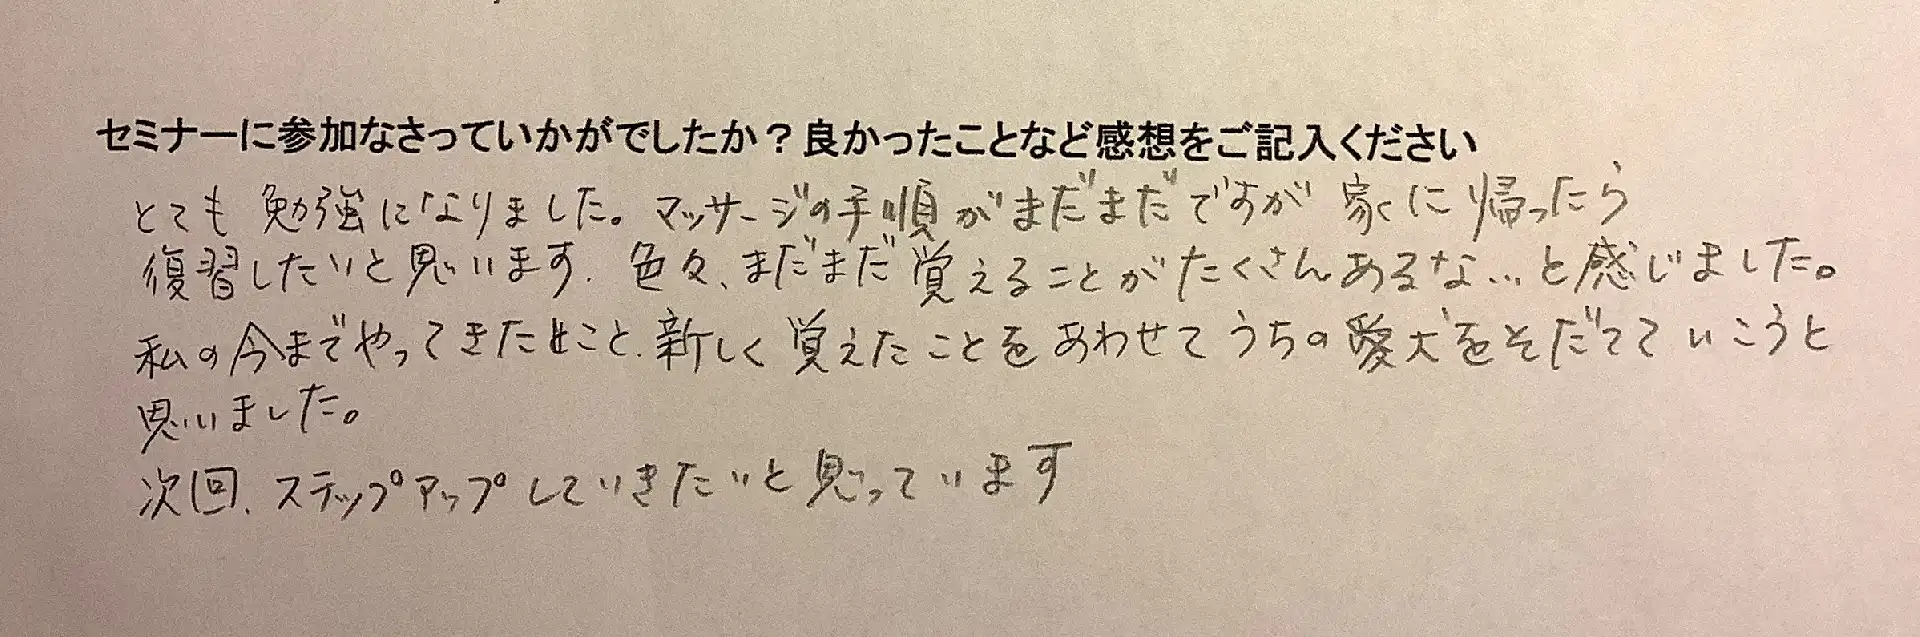 セミナーに参加なさっていかがでしたか？良かったことなど感想をご記入ください
とても勉強になりました。マッサージの手順がまだまだですが家に帰ったら
復習したいと思います、色々、まだまだ覚えることがたくさんあるな…と感じました。
私の今までやってきたこと、新しく覚えたことをあわせてうちの愛犬をそだてていこうと
思いました。
次回、ステップアップしていきたいと思っています